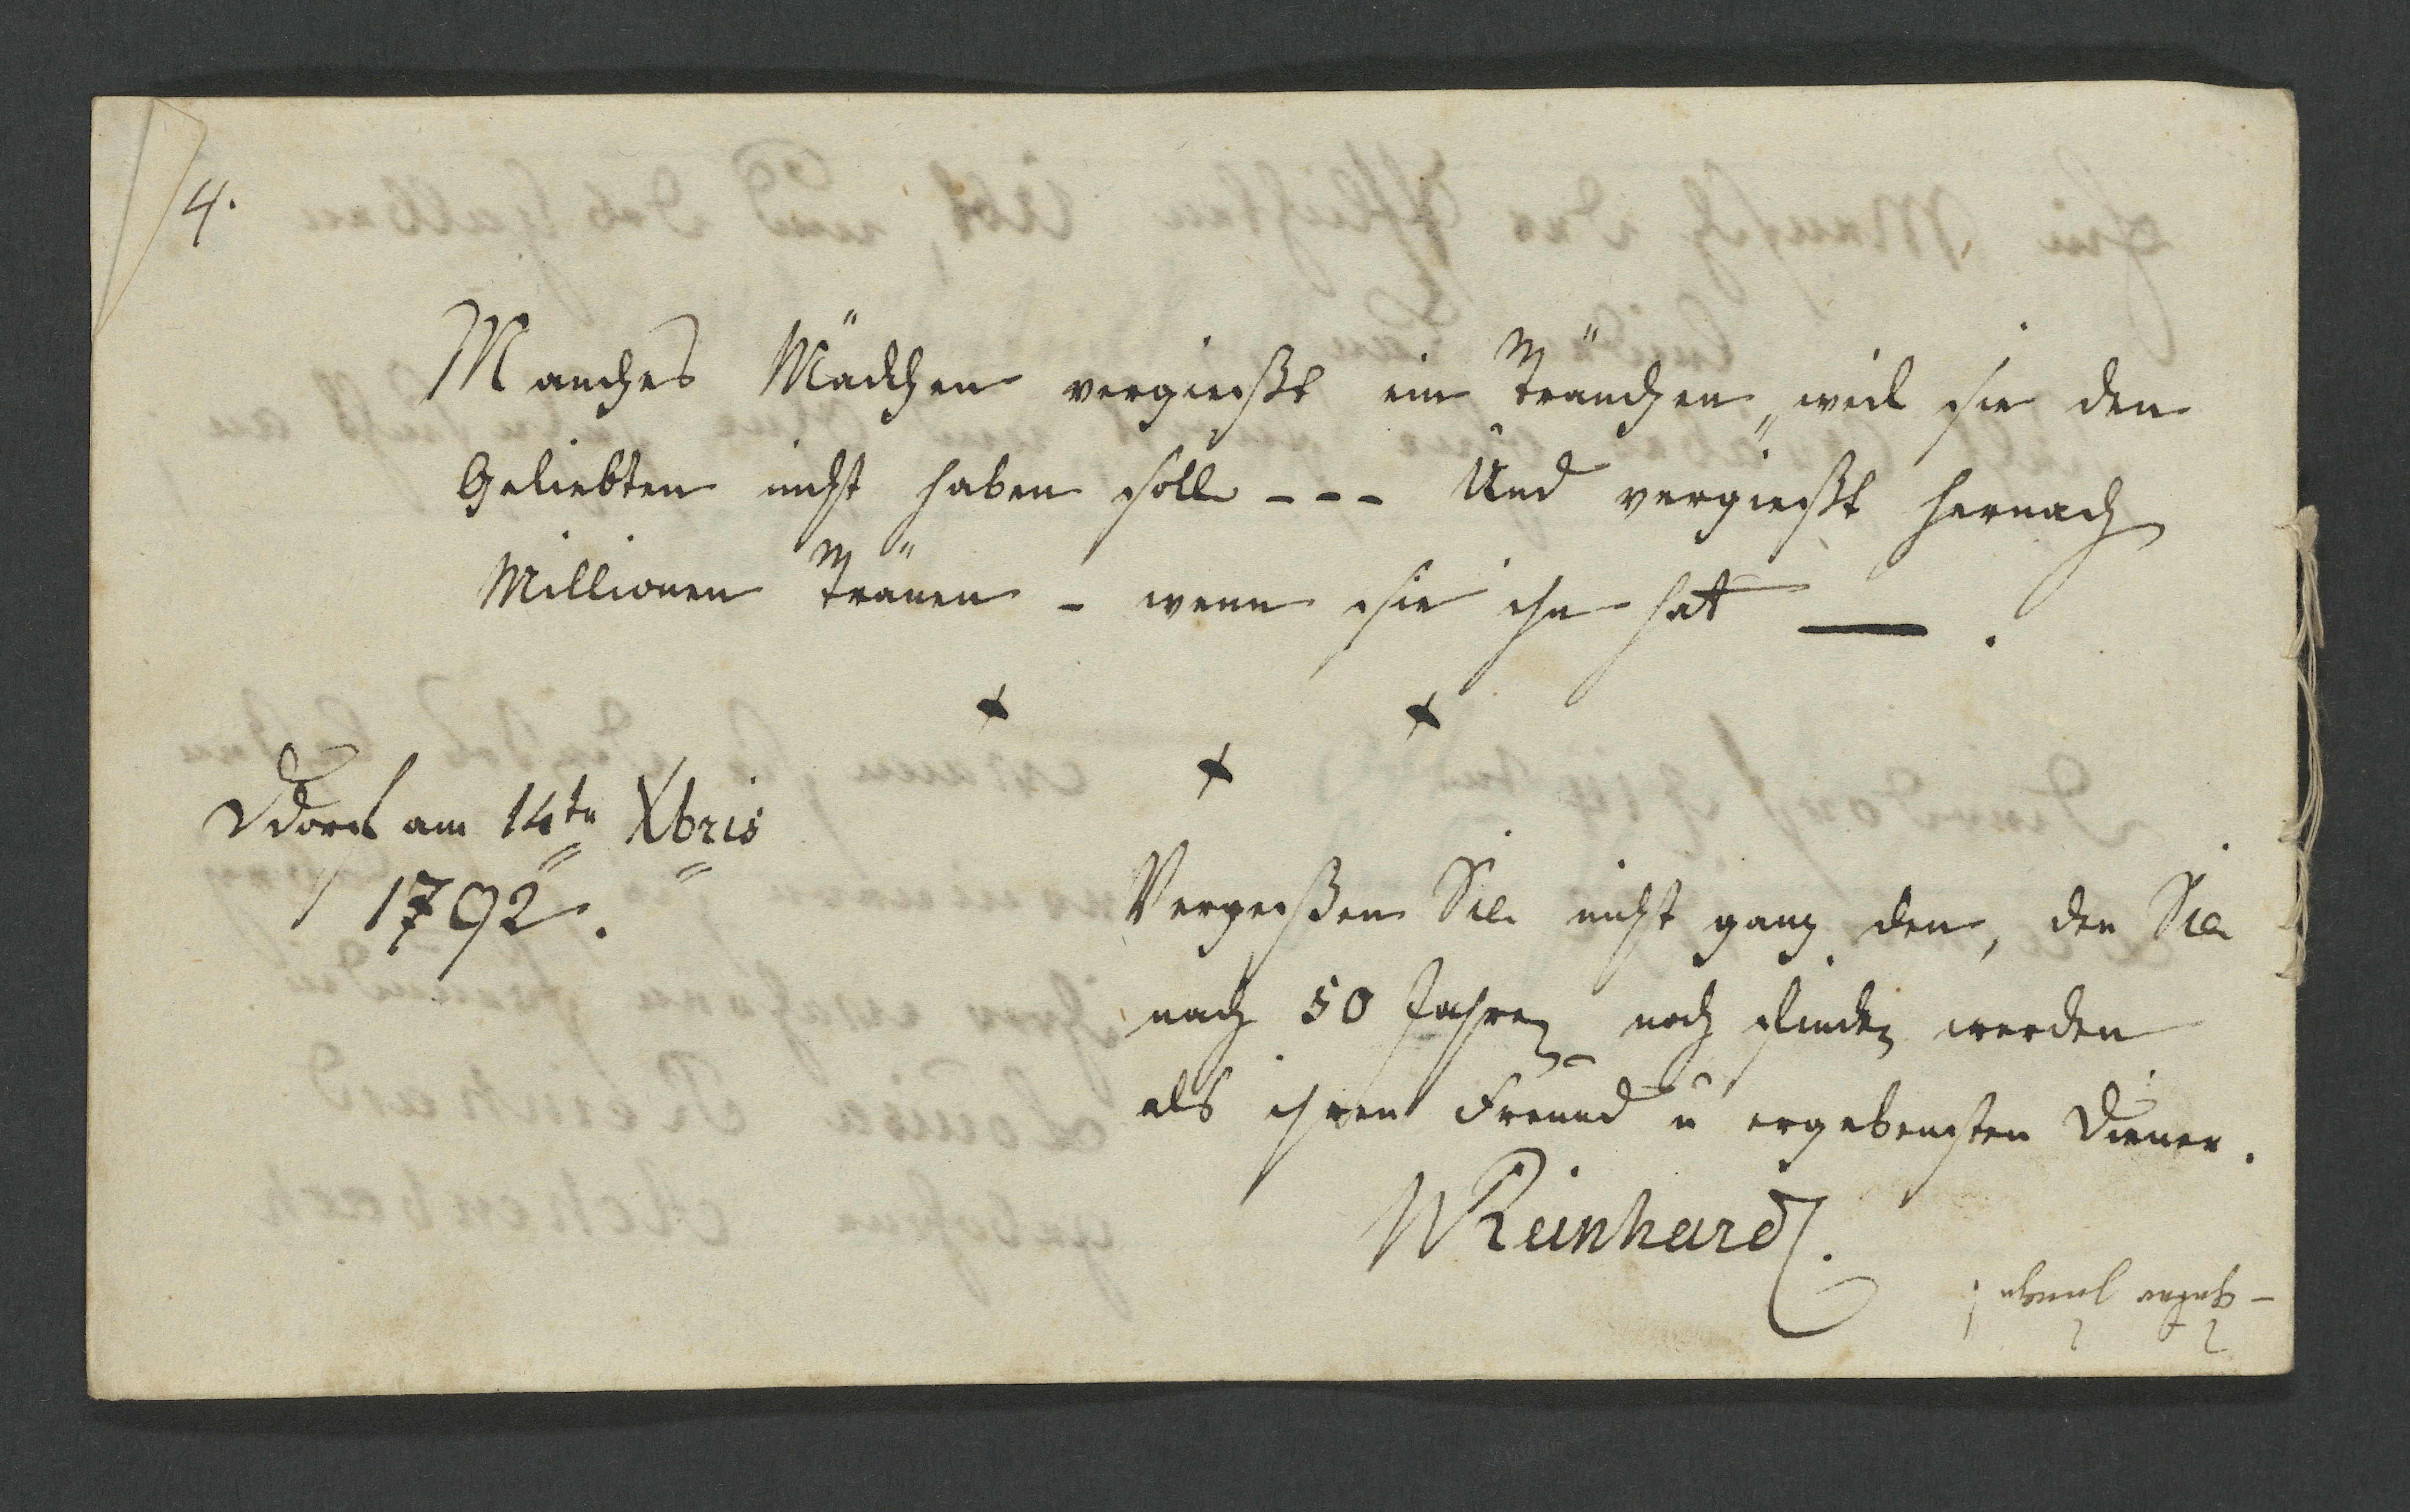 4.
Manches Mädchen vergießt ein Tränchen, weil sie den
Geliebten nicht haben soll --- Und vergießt hernach
Millionen Tränen - wenn sie ihn hat —.
Ddorf am 14tn Xbris
1792.
Vergeßen Sie nicht ganz den, den Sie
nach 50 Jahren noch finden werden
als ihren Freund u ergebensten Diener.
WReinhard.